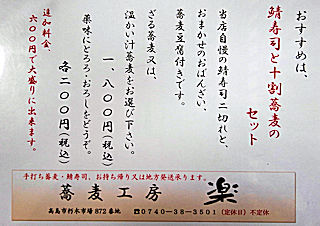 おすすめは、
鯖寿司と十割蕎麦の
セット
当店自慢の鯖寿司二切れと、
おまかせのおばんざい、
蕎麦豆腐付きです。
ざる蕎麦又は、
温かい汁蕎麦をお選び下さい。
一、八〇〇円(税込)
薬味にとろろ・おろしをどうぞ。
各二〇〇円(税込)
追加料金、
六〇〇円で大盛りに出来ます。
手打ち蕎麦・鯖寿司、お持ち帰り又は地方発送承ります。
蕎麦工房 楽
高島市朽木市場872番地 ☎0740-38-3501(定休日)不定休